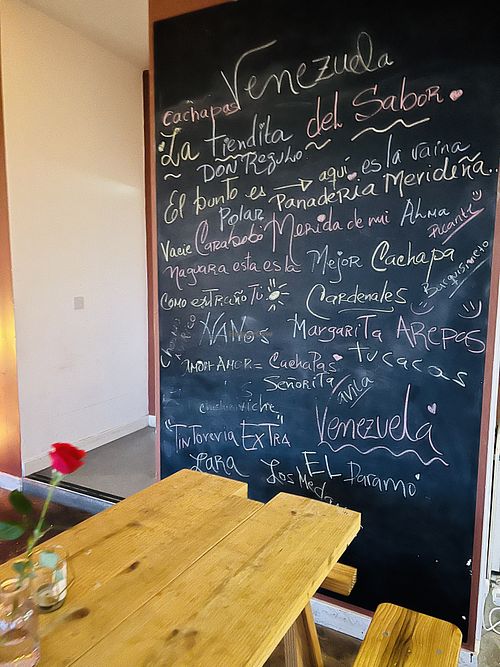 Venezuela
cachapas
La Tiendita del Sabor
DON REGULO
El punto es → aquí es la vaina
Panaderia Merideña..
Polar
Vacie Carabobo Merida de mi Alma
Picante
Naguara esta es la Mejor Cachapa
Barquisimeto
COMO extRAÑO TU
Cardenales
MargariTa AREPAS
AMOR AMOR = CACHAPAS
tucacas
SEÑORITA
avila
"TinToreria ExTRA"
Venezuela
LARA
EL Paramo